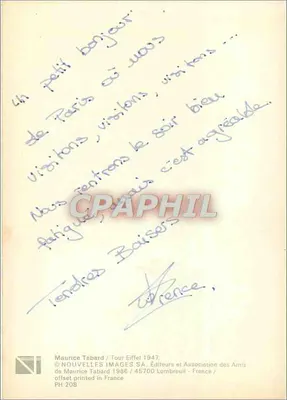 Un petit bonjour
de Paris où nous
visitons, visitons, visitons ...
Nous rentrons le soir bien
fatigués, mais c'est agréable
Tendres Baisers
CPAPHIL
Maurice Tabard / Tour Eiffel 1947.
© NOUVELLES IMAGES S.A. Éditeurs et Association des Amis
de Maurice Tabard 1986 / 45700 Lombreuil - France /
offset printed in France
PH 208